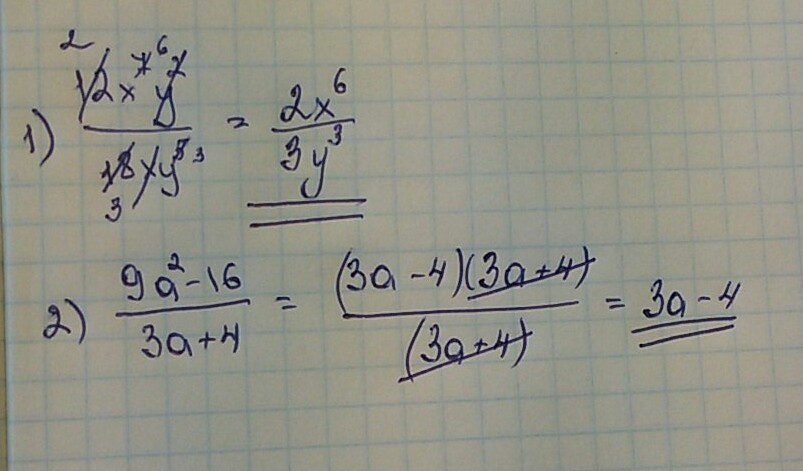 1) 12x⁷y²/18xy⁵ = 2x⁶/3y³
2) 9a²-16/3a+4 = (3a-4)(3a+4)/(3a+4) = 3a-4